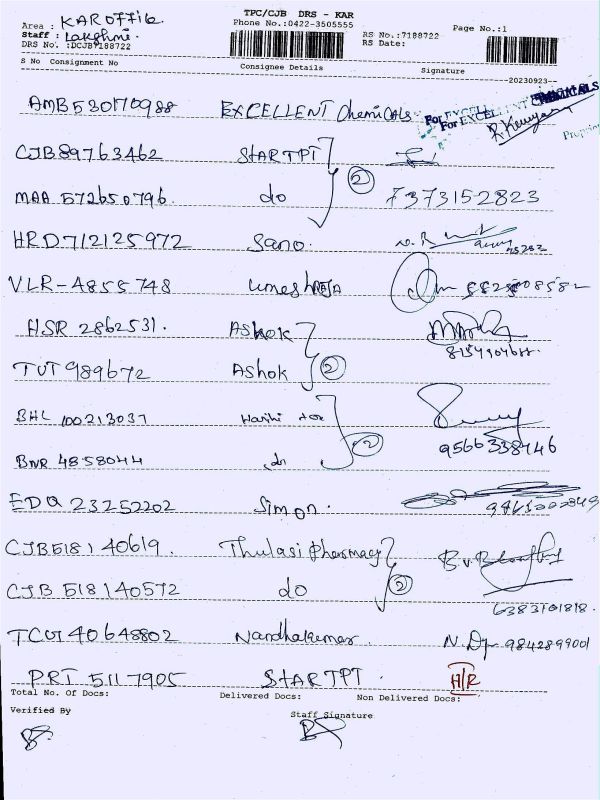 TPC/CJB DRS - KAR
Area : KAROFFIE
Phone No.:0422-3505555
Page No.:1
Staff : Lakshmi.
RS No.:7188722
DRS No. :DCJB7188722
RS Date:
S No Consignment No Consignee Details Signature
20230923
AMB530170988 EXCELLENT Chemicals For EXCELLENT CHEMICALS
CJB89763462 STARTPT
MAA 572650796. do 2 7373152823
HRD712125972 Sano.
VLR-4855748 Umesh 8825008582
HSR 2862531. Ashok
TUT 989672 Ashok 2
BHL 100213037
BNR 4858044 do 2 9566338446
EDQ 23252202 Simon.
CJB518140619. Thulasi pharmacy
CJB 518140572 do 2 6383101818.
TCUT 40648802 Nandhakumar. 9842899001
PRT 5117905 STARTPT. H/R
Total No. Of Docs: Delivered Docs: Non Delivered Docs:
Verified By Staff Signature